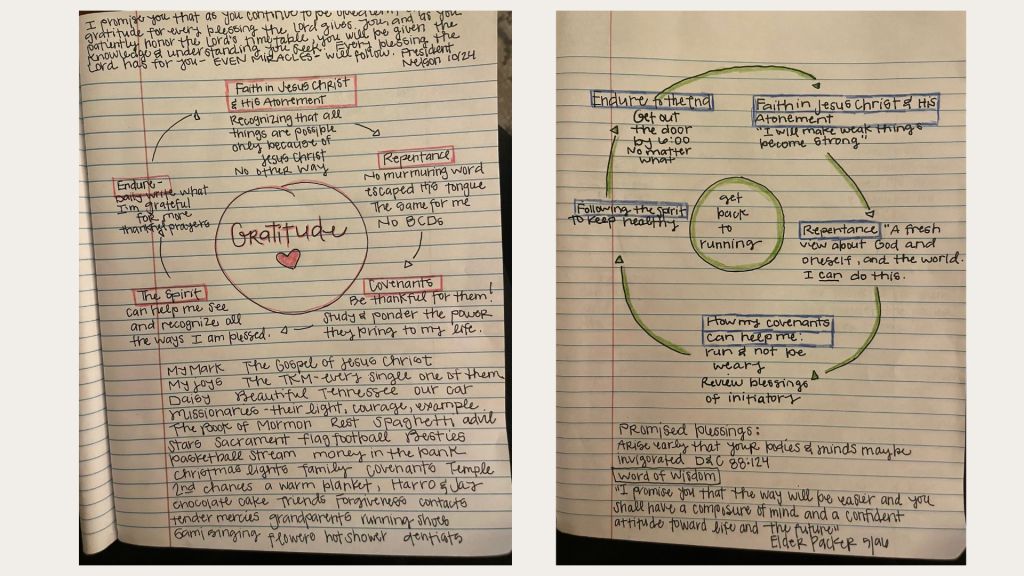 I promise you that as you continue to be obedient,
gratitude for every blessing the Lord gives you, and as you
patiently honor the Lord's timetable, you will be given the
knowledge & understanding you seek. Every blessing the
Lord has for you- EVEN MIRACLES- will follow. President
Nelson 10/24
Faith in Jesus Christ
& His Atonement
Recognizing that all
things are possible
only because of
Jesus Christ
No other way
Repentance
No murmuring word
escaped His tongue
The same for me
No BCDs
Covenants
Be thankful for them!
Study & ponder the power
they bring to my life.
The Spirit
can help me see
and recognize all
the ways I am blessed.
Endure-
Daily write what
I'm grateful
for more
thankful prayers
Gratitude
My Mark The Gospel of Jesus Christ
My Joys The TKM-every single one of them
Daisy Beautiful Tennessee our car
Missionaries-their light, courage, example
The Book of Mormon Rest Spaghetti advil
stars Sacrament flag football Besties
basketball stream money in the bank
Christmas lights family covenants Temple
2nd chances a warm blanket, Harro & Jaz
chocolate cake friends forgiveness contacts
tender mercies grandparents running shoes
Sami singing flowers hot shower dentists
Endure to the end
Get out
the door
by 6:00
No matter
what
Faith in Jesus Christ & His
Atonement
"I will make weak things
become strong"
Repentance "A fresh
view about God and
oneself, and the world.
I can do this.
How my covenants
can help me:
run & not be
weary
Review blessings
of initiatory
Following the Spirit
to keep healthy
get
back
to
running
Promised blessings:
Arise early that your bodies & minds may be
invigorated D&C 88:124
Word of Wisdom
"I promise you that the way will be easier and you
shall have a composure of mind and a confident
attitude toward life and the future"
Elder Packer